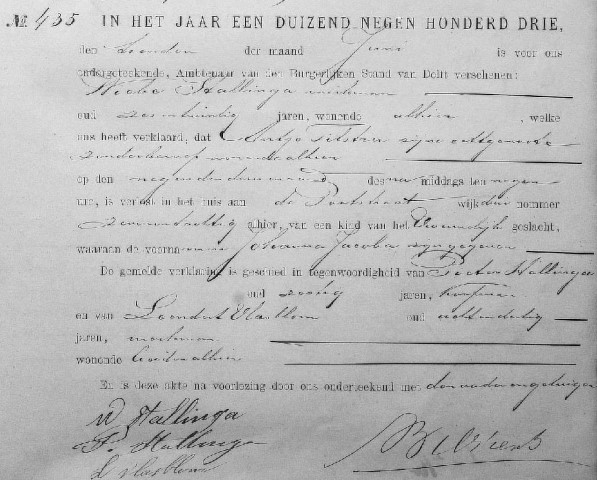 No. 435 IN HET JAAR EEN DUIZEND NEGEN HONDERD DRIE,
den tienden der maand Juni is voor ons
ondergeteekende, Ambtenaar van den Burgerlijken Stand van Delft verschenen:
Wiebe Hallinga werkman
oud jaren, wonende alhier, welke
ons heeft verklaard, dat zijne echtgenoote
zonder beroep wonende alhier
op den negenden dezer maand des na middags ten negen
ure, is verlost in het huis aan de wijk nommer
zevenentachtig alhier, van een kind van het Vrouwelijk geslacht,
waaraan de voornamen Johanna Jacoba zijn gegeven
De gemelde verklaring is geschied in tegenwoordigheid van Pieter Hallinga
oud zestig jaren,
en van Leendert Vlasblom oud achtendertig
jaren, werkman
wonende beiden alhier
En is deze akte na voorlezing door ons onderteekend met den vader en getuigen
W Hallinga
P. Hallinga
L Vlasblom